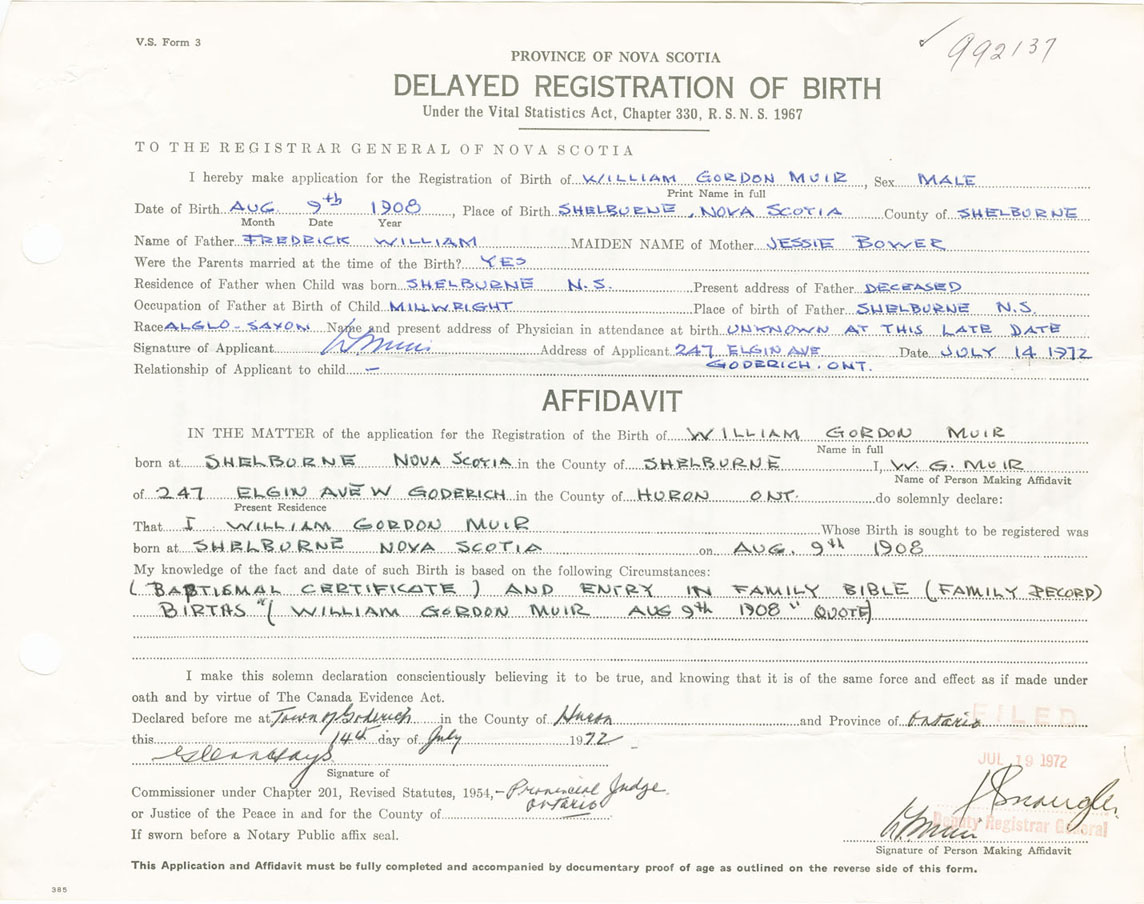 V.S. Form 3
992137
PROVINCE OF NOVA SCOTIA
DELAYED REGISTRATION OF BIRTH
Under the Vital Statistics Act, Chapter 330, R. S. N. S. 1967
TO THE REGISTRAR GENERAL OF NOVA SCOTIA
I hereby make application for the Registration of Birth of WILLIAM GORDON MUIR, Sex MALE
Print Name in full
Date of Birth AUG. 9th 1908, Place of Birth SHELBURNE, NOVA SCOTIA County of SHELBURNE
Month Date Year
Name of Father FREDRICK WILLIAM MAIDEN NAME of Mother JESSIE BOWER
Were the Parents married at the time of the Birth? YES
Residence of Father when Child was born SHELBURNE N.S. Present address of Father DECEASED
Occupation of Father at Birth of Child MILLWRIGHT Place of birth of Father SHELBURNE N.S.
Race ALGLO-SAXON Name and present address of Physician in attendance at birth UNKNOWN AT THIS LATE DATE
Signature of Applicant W. Muir Address of Applicant 247 ELGIN AVE Date JULY 14 1972
GODERICH. ONT.
Relationship of Applicant to child —
AFFIDAVIT
IN THE MATTER of the application for the Registration of the Birth of WILLIAM GORDON MUIR
Name in full
born at SHELBURNE NOVA SCOTIA in the County of SHELBURNE I, W. G. MUIR
Name of Person Making Affidavit
of 247 ELGIN AVE W GODERICH in the County of HURON ONT. do solemnly declare:
Present Residence
That I WILLIAM GORDON MUIR Whose Birth is sought to be registered was
born at SHELBURNE NOVA SCOTIA on AUG. 9th 1908
My knowledge of the fact and date of such Birth is based on the following Circumstances:
(BAPTISMAL CERTIFICATE) AND ENTRY IN FAMILY BIBLE (FAMILY RECORD)
BIRTHS "(WILLIAM GORDON MUIR AUG 9th 1908" QUOTE)
I make this solemn declaration conscientiously believing it to be true, and knowing that it is of the same force and effect as if made under
oath and by virtue of The Canada Evidence Act.
Declared before me at Town of Goderich in the County of Huron and Province of Ontario
FILED
this 14th day of July 1972
JUL 19 1972
Signature of
Commissioner under Chapter 201, Revised Statutes, 1954, - Provincial Judge
Ontario
or Justice of the Peace in and for the County of
Deputy Registrar General
If sworn before a Notary Public affix seal.
W. Muir
Signature of Person Making Affidavit
This Application and Affidavit must be fully completed and accompanied by documentary proof of age as outlined on the reverse side of this form.
385